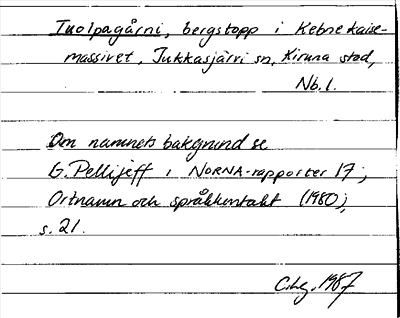 Tuolpagårni, bergstopp i Kebnekaise-
massivet, Jukkasjärvi sn, Kiruna stad,
Nb.l.
Om namnets bakgrund se
G. Pellijeff i NORNA-rapporter 17;
Ortnamn och språkkontakt (1980),
s. 21.
1987